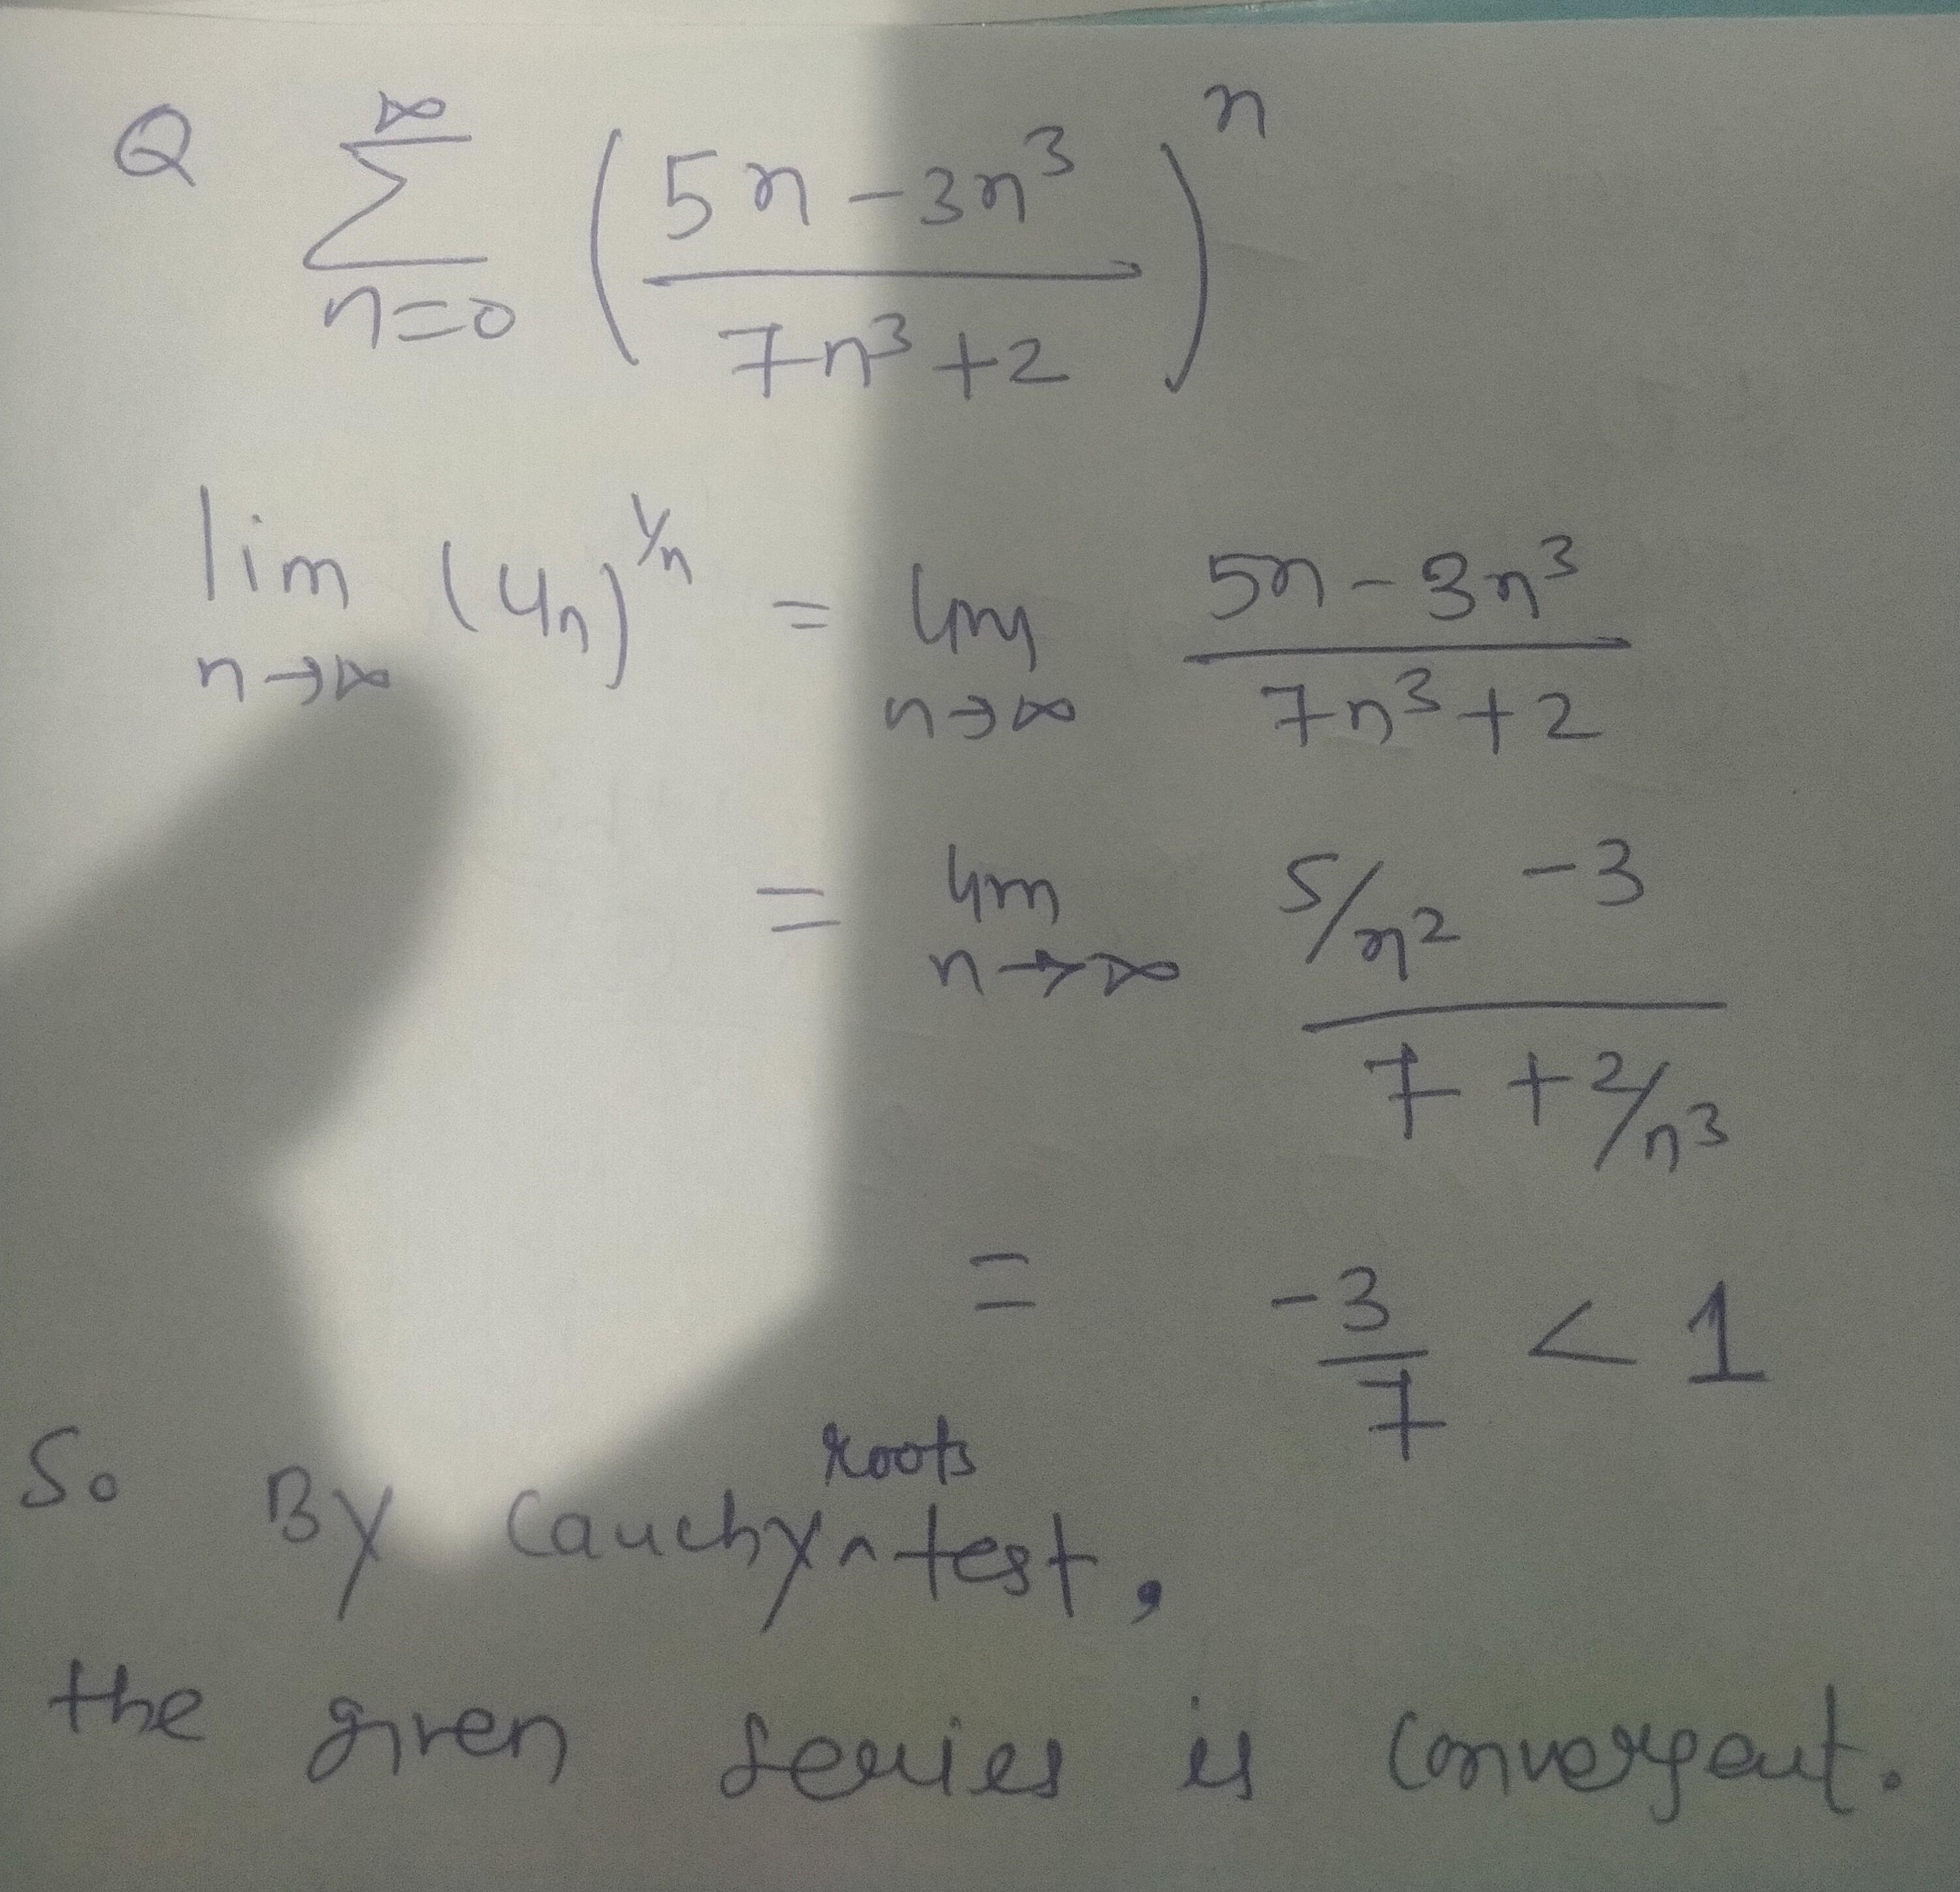 Q ∑_{n=0}^{∞} ( (5n - 3n³) / (7n³ + 2) )ⁿ
lim_{n→∞} (uₙ)^{1/n} = lim_{n→∞} (5n - 3n³) / (7n³ + 2)
= lim_{n→∞} (5/n² - 3) / (7 + 2/n³)
= -3/7 < 1
So By Cauchy roots test,
the given series is convergent.